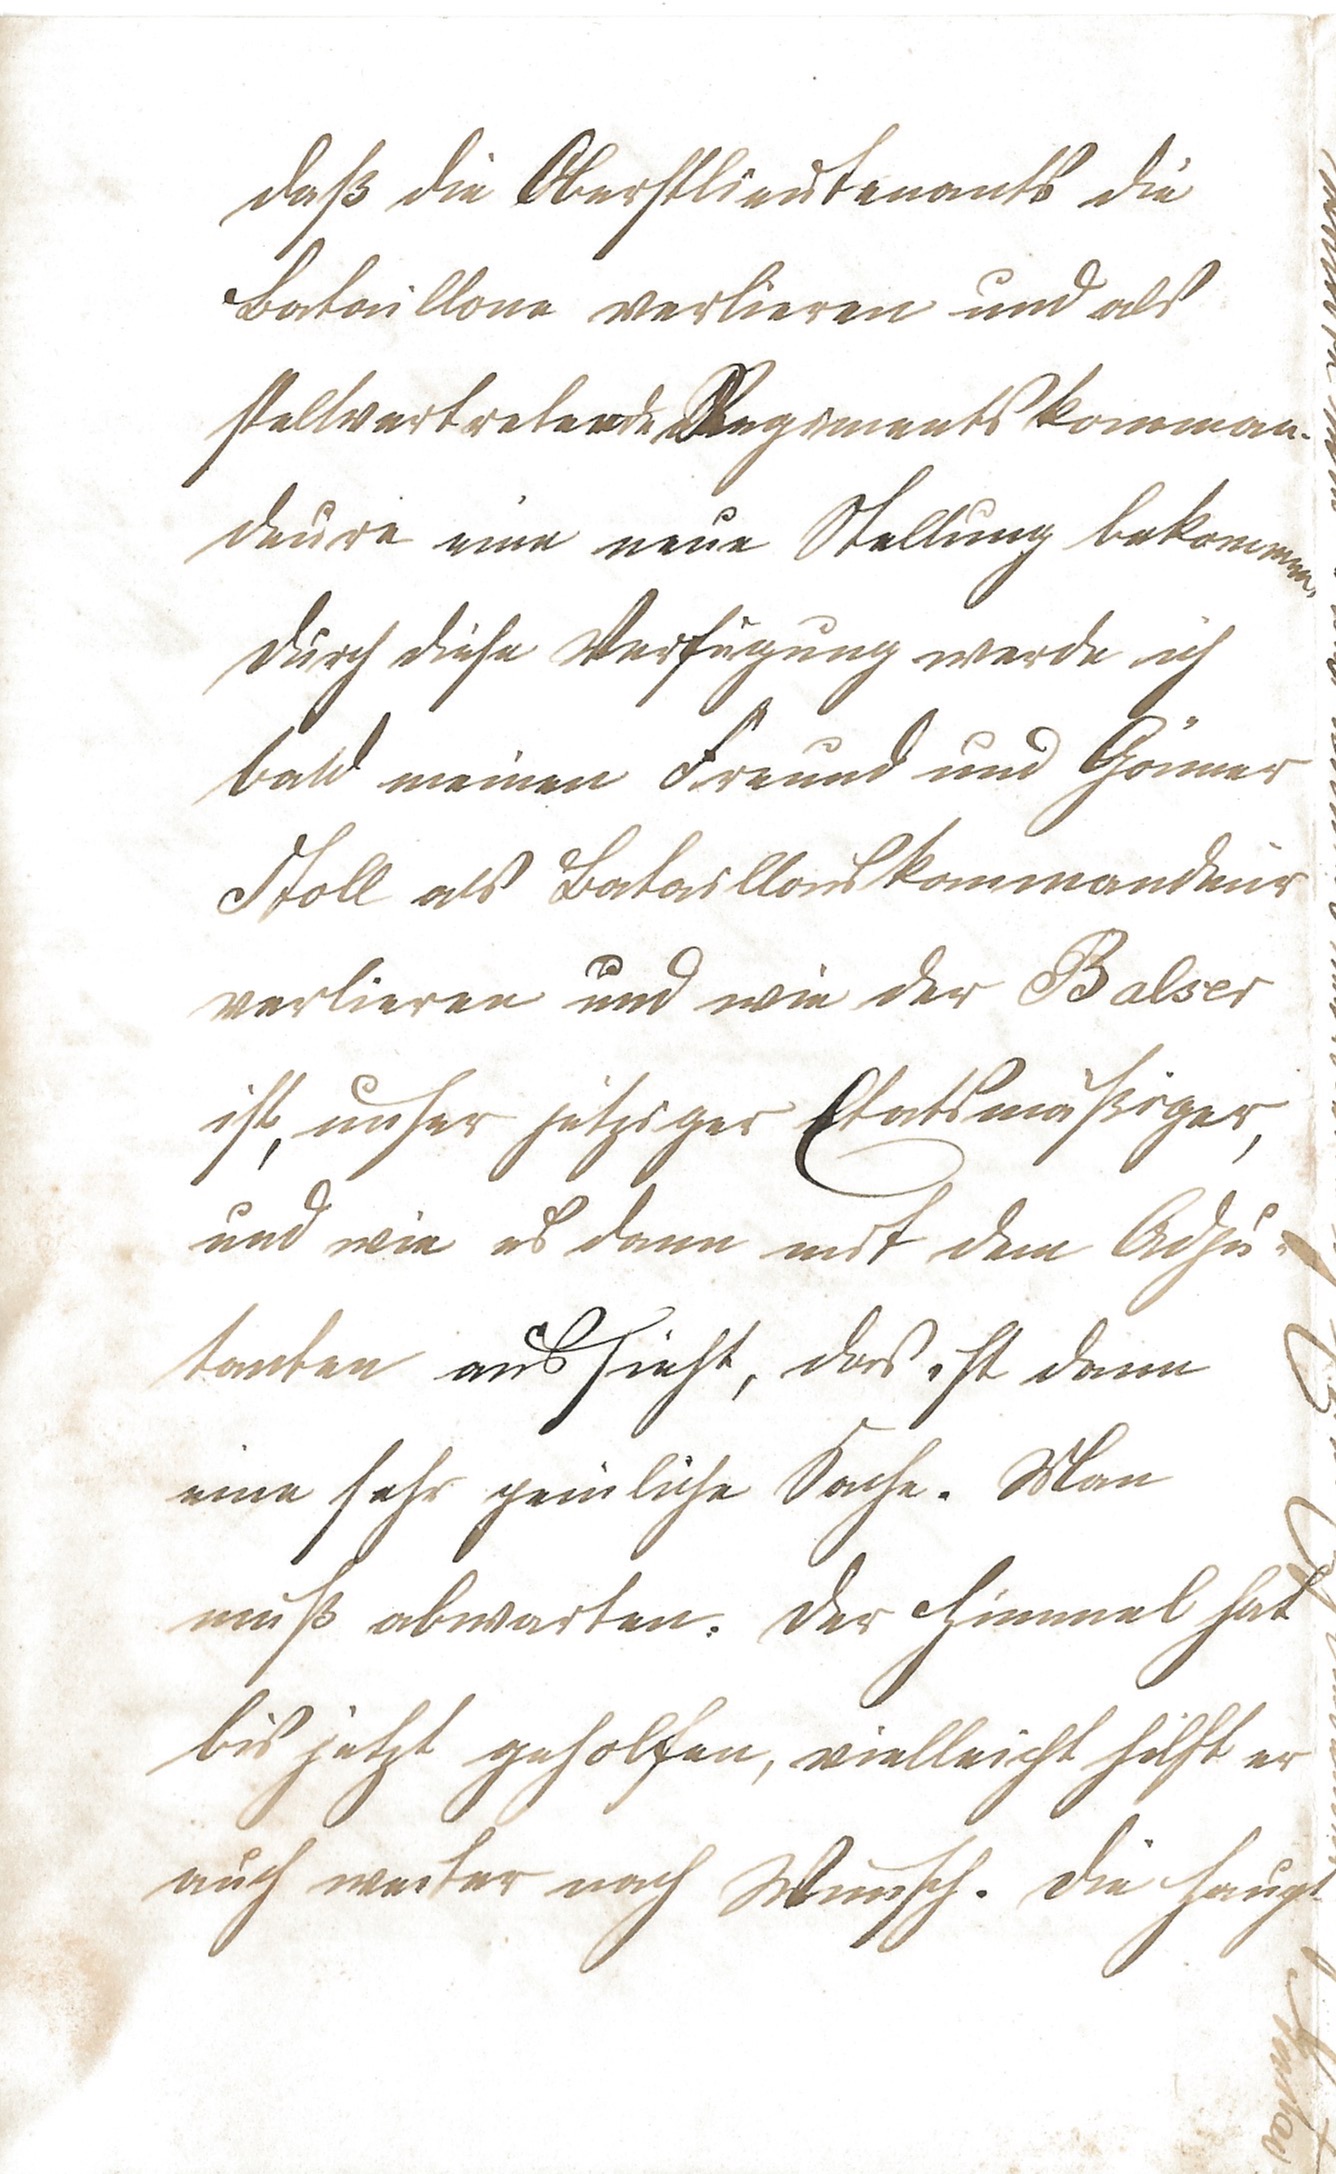 daß die Oberstlieutenants die
Bataillone verlieren und als
stellvertretende Regimentskomman-
deure eine neue Stellung bekommen.
Durch diese Verfügung werde ich
bald meinen Freund und Gönner
Stoll als Bataillonskommandeur
verlieren und wie der Balser
ist, unser jetziger Etatsmäßiger,
und wie es dann mit dem Adju-
tanten aussieht, das ist dann
eine sehr peinliche Sache. Man
muß abwarten. Der Himmel hat
bis jetzt geholfen, vielleicht hilft er
auch weiter nach Wunsch. Die Haupt